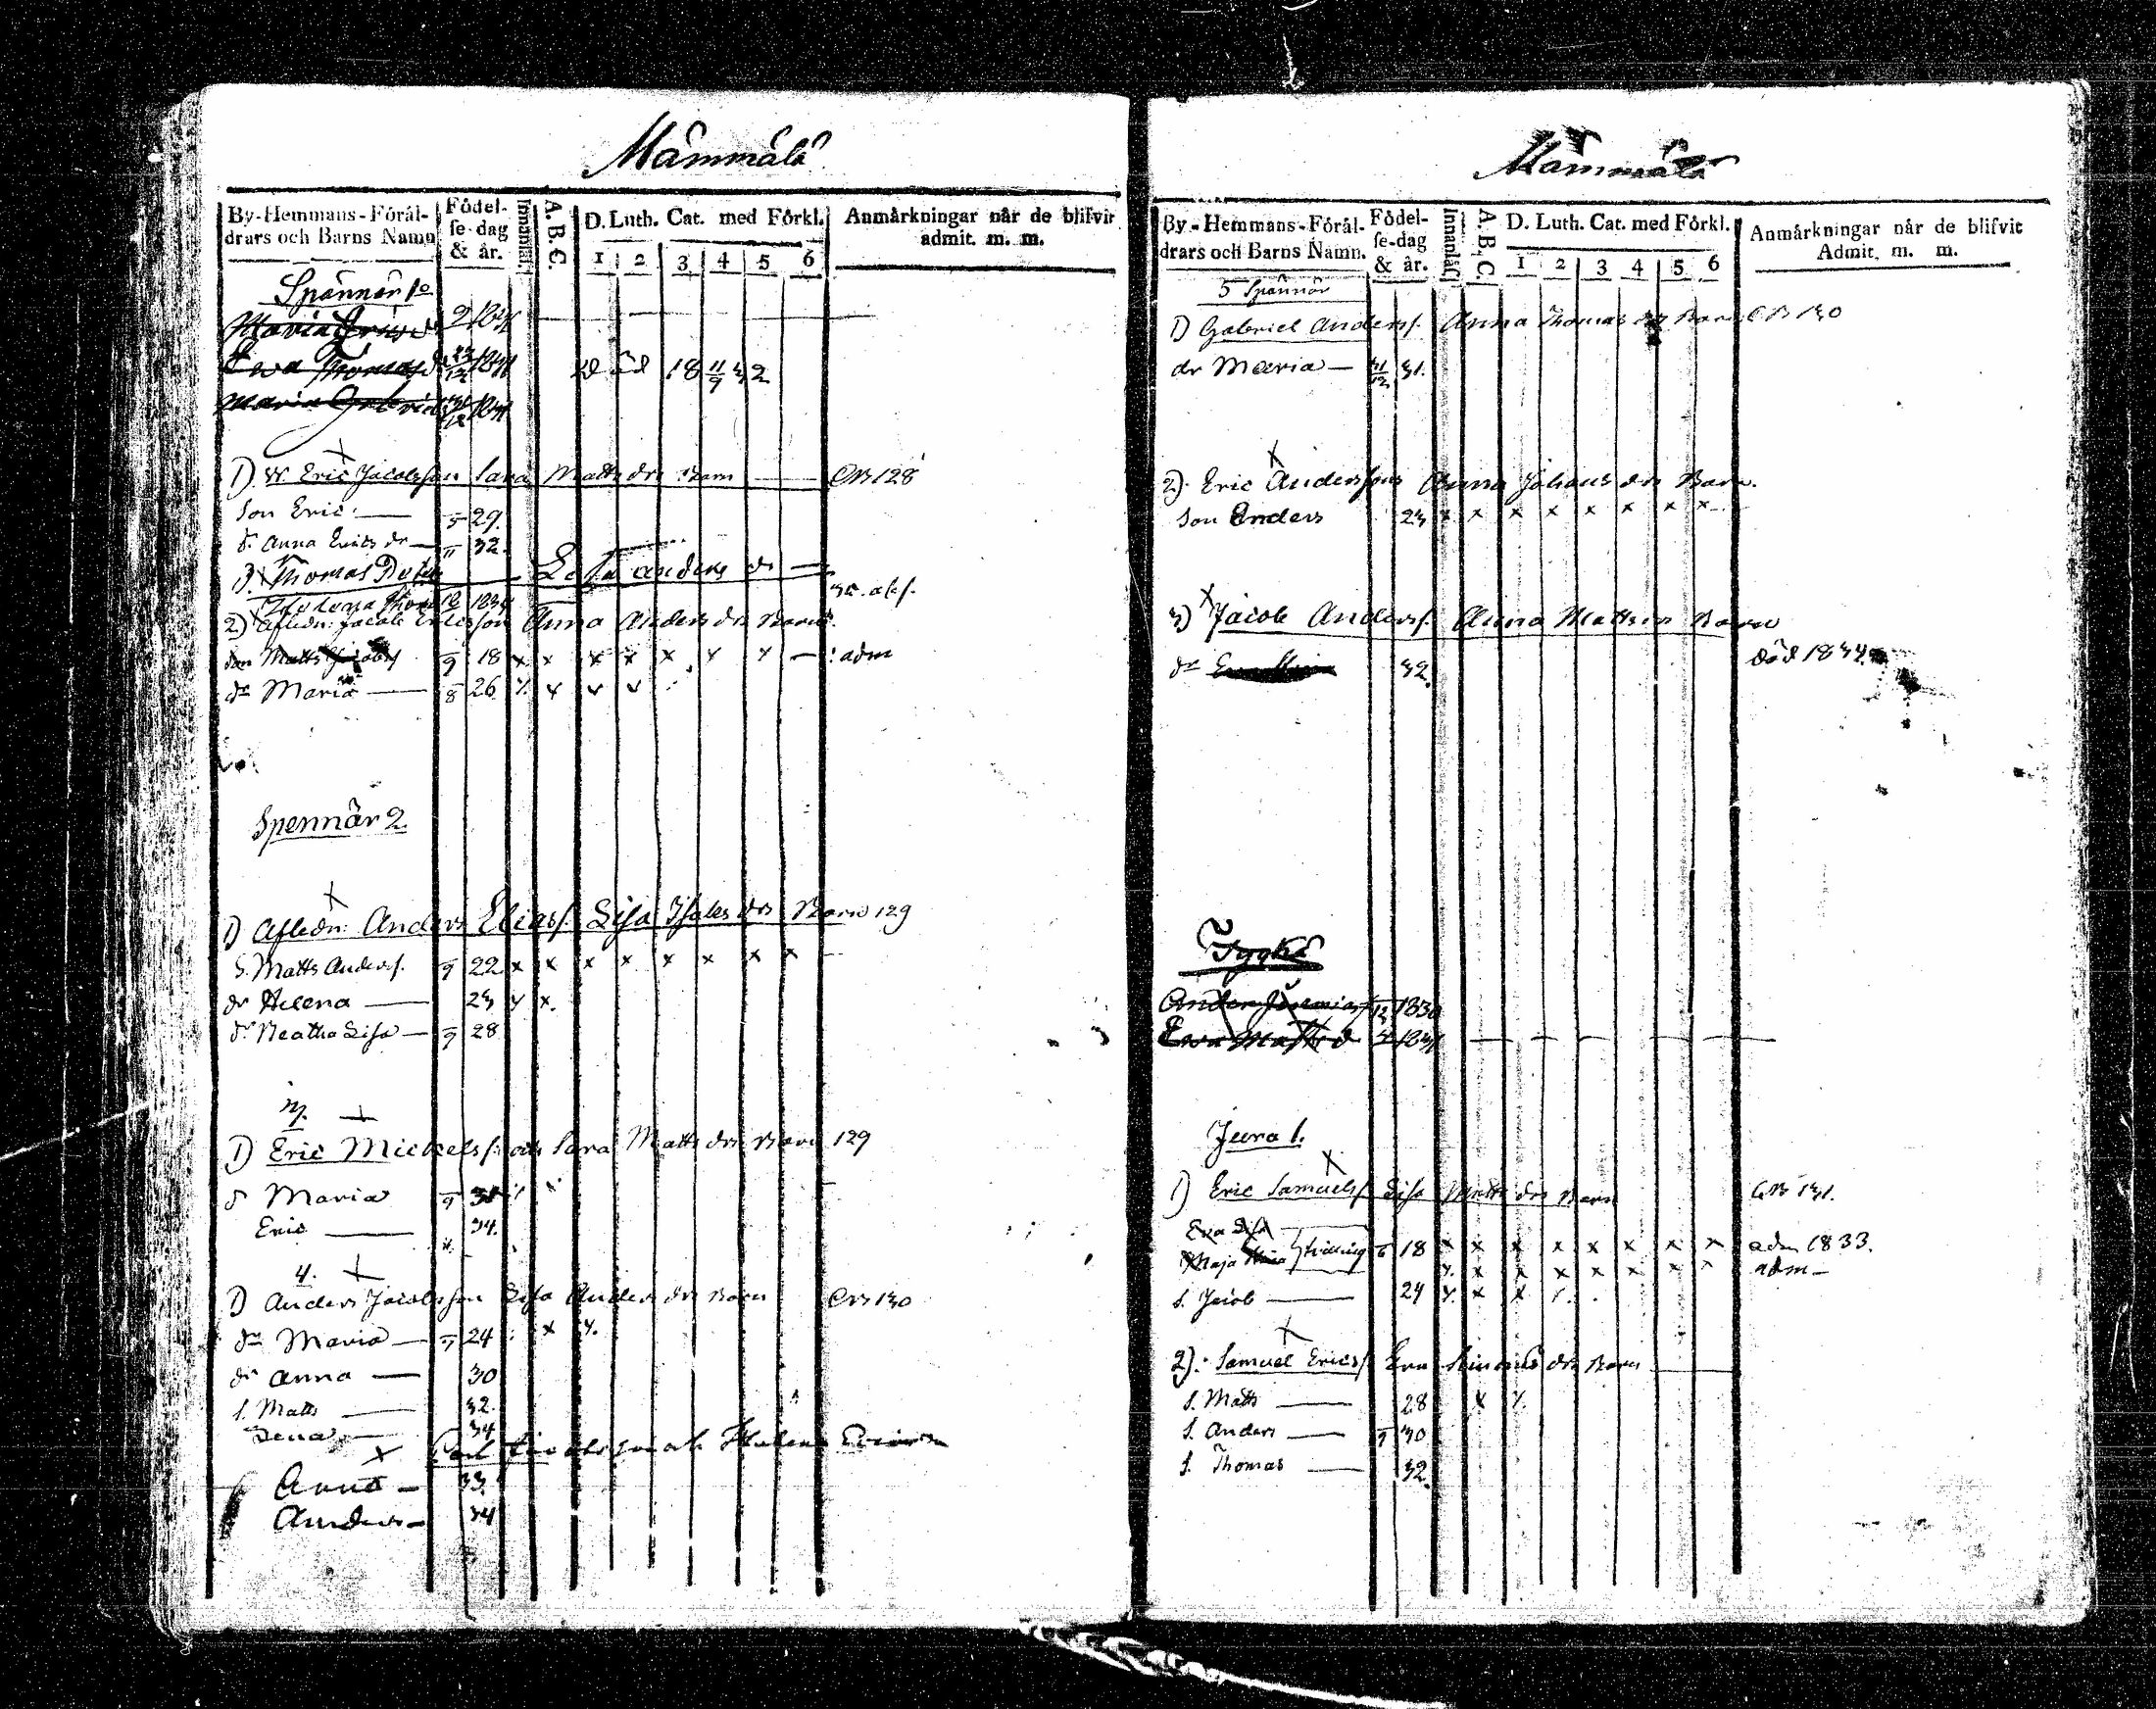 Mämmälä
By-Hemmans-Föräl-
drars och Barns Namn
Födel-
se-dag
& år.
Innanläs.
A. B. C.
D. Luth. Cat. med Förkl.
1 2 3 4 5 6
Anmärkningar när de blifvit
admit. m. m.
Spännär 1o
Maria
Ewa Thomasd 1831 död 18 11/9 32
Maria
1) Eric Jacobsson Sara Matts dr Barn CB 128
Son Eric 29.
d. Anna Erics dr 32.
3. Thomas Lisa Anders dr
12 1834
2) Afledn: Jacob Ericsson Anna Anders drs Barn
son Matts 9 18 x x x x x x x adm
dr Maria 8 26 x x x x
Spennär 2.
1) Afledn: Anders Eliass. Lisa Isaks drs Barn 129
S. Matts Anderss. 9 22 x x x x x x x x
dr Helena 23 x x.
dr Beatha Lisa 9 28
3.
1) Eric Mickelss. och Sara Matts drs Barn 129
Maria 9 31
Eric 34.
4.
1) Anders Jacobsson Lisa Anders drs Barn CB 130
dr Maria 24 x x.
dr Anna 30
s. Matts 32.
Lena 34
Helena
Anna 33.
Anders 34
Mämmälä
By-Hemmans-Föräl-
drars och Barns Namn.
Födel-
se-dag
& år.
Innanläs.
A. B. C.
D. Luth. Cat. med Förkl.
1 2 3 4 5 6
Anmärkningar när de blifvit
Admit. m. m.
5 Spännär
1) Gabriel Anderss. Anna Thomas drs Barn CB 130
dr Maria 31/12 31.
2). Eric Anderssons Anna Johans drs Barn.
Son Anders 23 x x x x x x x x
3) Jacob Anderss. Anna Matts dr Barn
dr 32. död 1834
Tyykä
Anders 12 1830
Ewa Matts d 1831
Juva 1.
1) Eric Samuelss. Lisa Matts drs Barn CB 131.
Eva Lisa
Maja Stina tvilling 6 18 x x x x x x x x adm 1833.
x x x x x x x x adm
s. Jacob 24 x x x x
2). Samuel Ericss. Eva Simons drs Barn
s. Matts 28 x x
s. Anders 9 30
s. Thomas 32